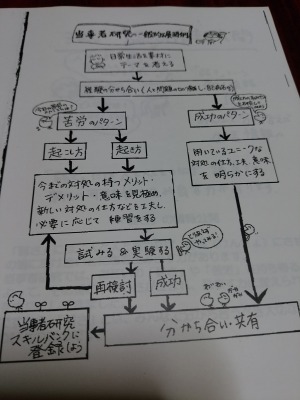 当事者研究の一般的な展開例
日常生活を素材に
テーマを考える
経験の分かち合い
苦労のパターン
成功のパターン
起こし方
起き方
用いているユニークな
対処の仕方、工夫、意味
を明らかにする
今までの対処の持つメリット・
デメリット・意味を見極め、
新しい対処の仕方などを工夫し、
必要に応じて練習をする
試みる&実験する
再検討
成功
当事者研究
スキルバンクに
登録しよう
分かち合い・共有